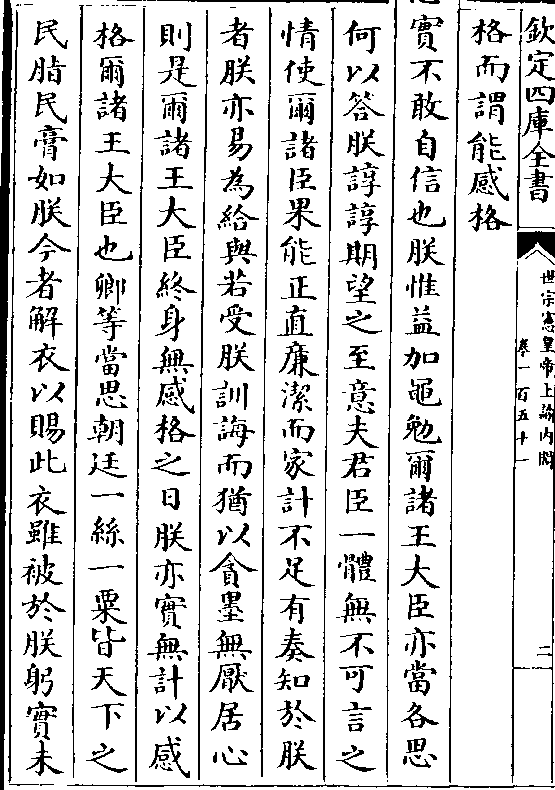 欽定四庫全書
世宗憲皇帝上諭內閣
卷一百五十一
二
格而謂能感格
實不敢自信也朕惟益加黽勉爾諸王大臣亦當各思
何以答朕諄諄期望之至意夫君臣一體無不可言之
情使爾諸臣果能正直廉潔而家計不足有奏知於朕
者朕亦易為給與若受朕訓誨而猶以貪墨無厭居心
則是爾諸王大臣終身無感格之日朕亦實無計以感
格爾諸王大臣也卿等當思朝廷一絲一粟皆天下之
民脂民膏如朕今者解衣以賜此衣雖被於朕躬實未